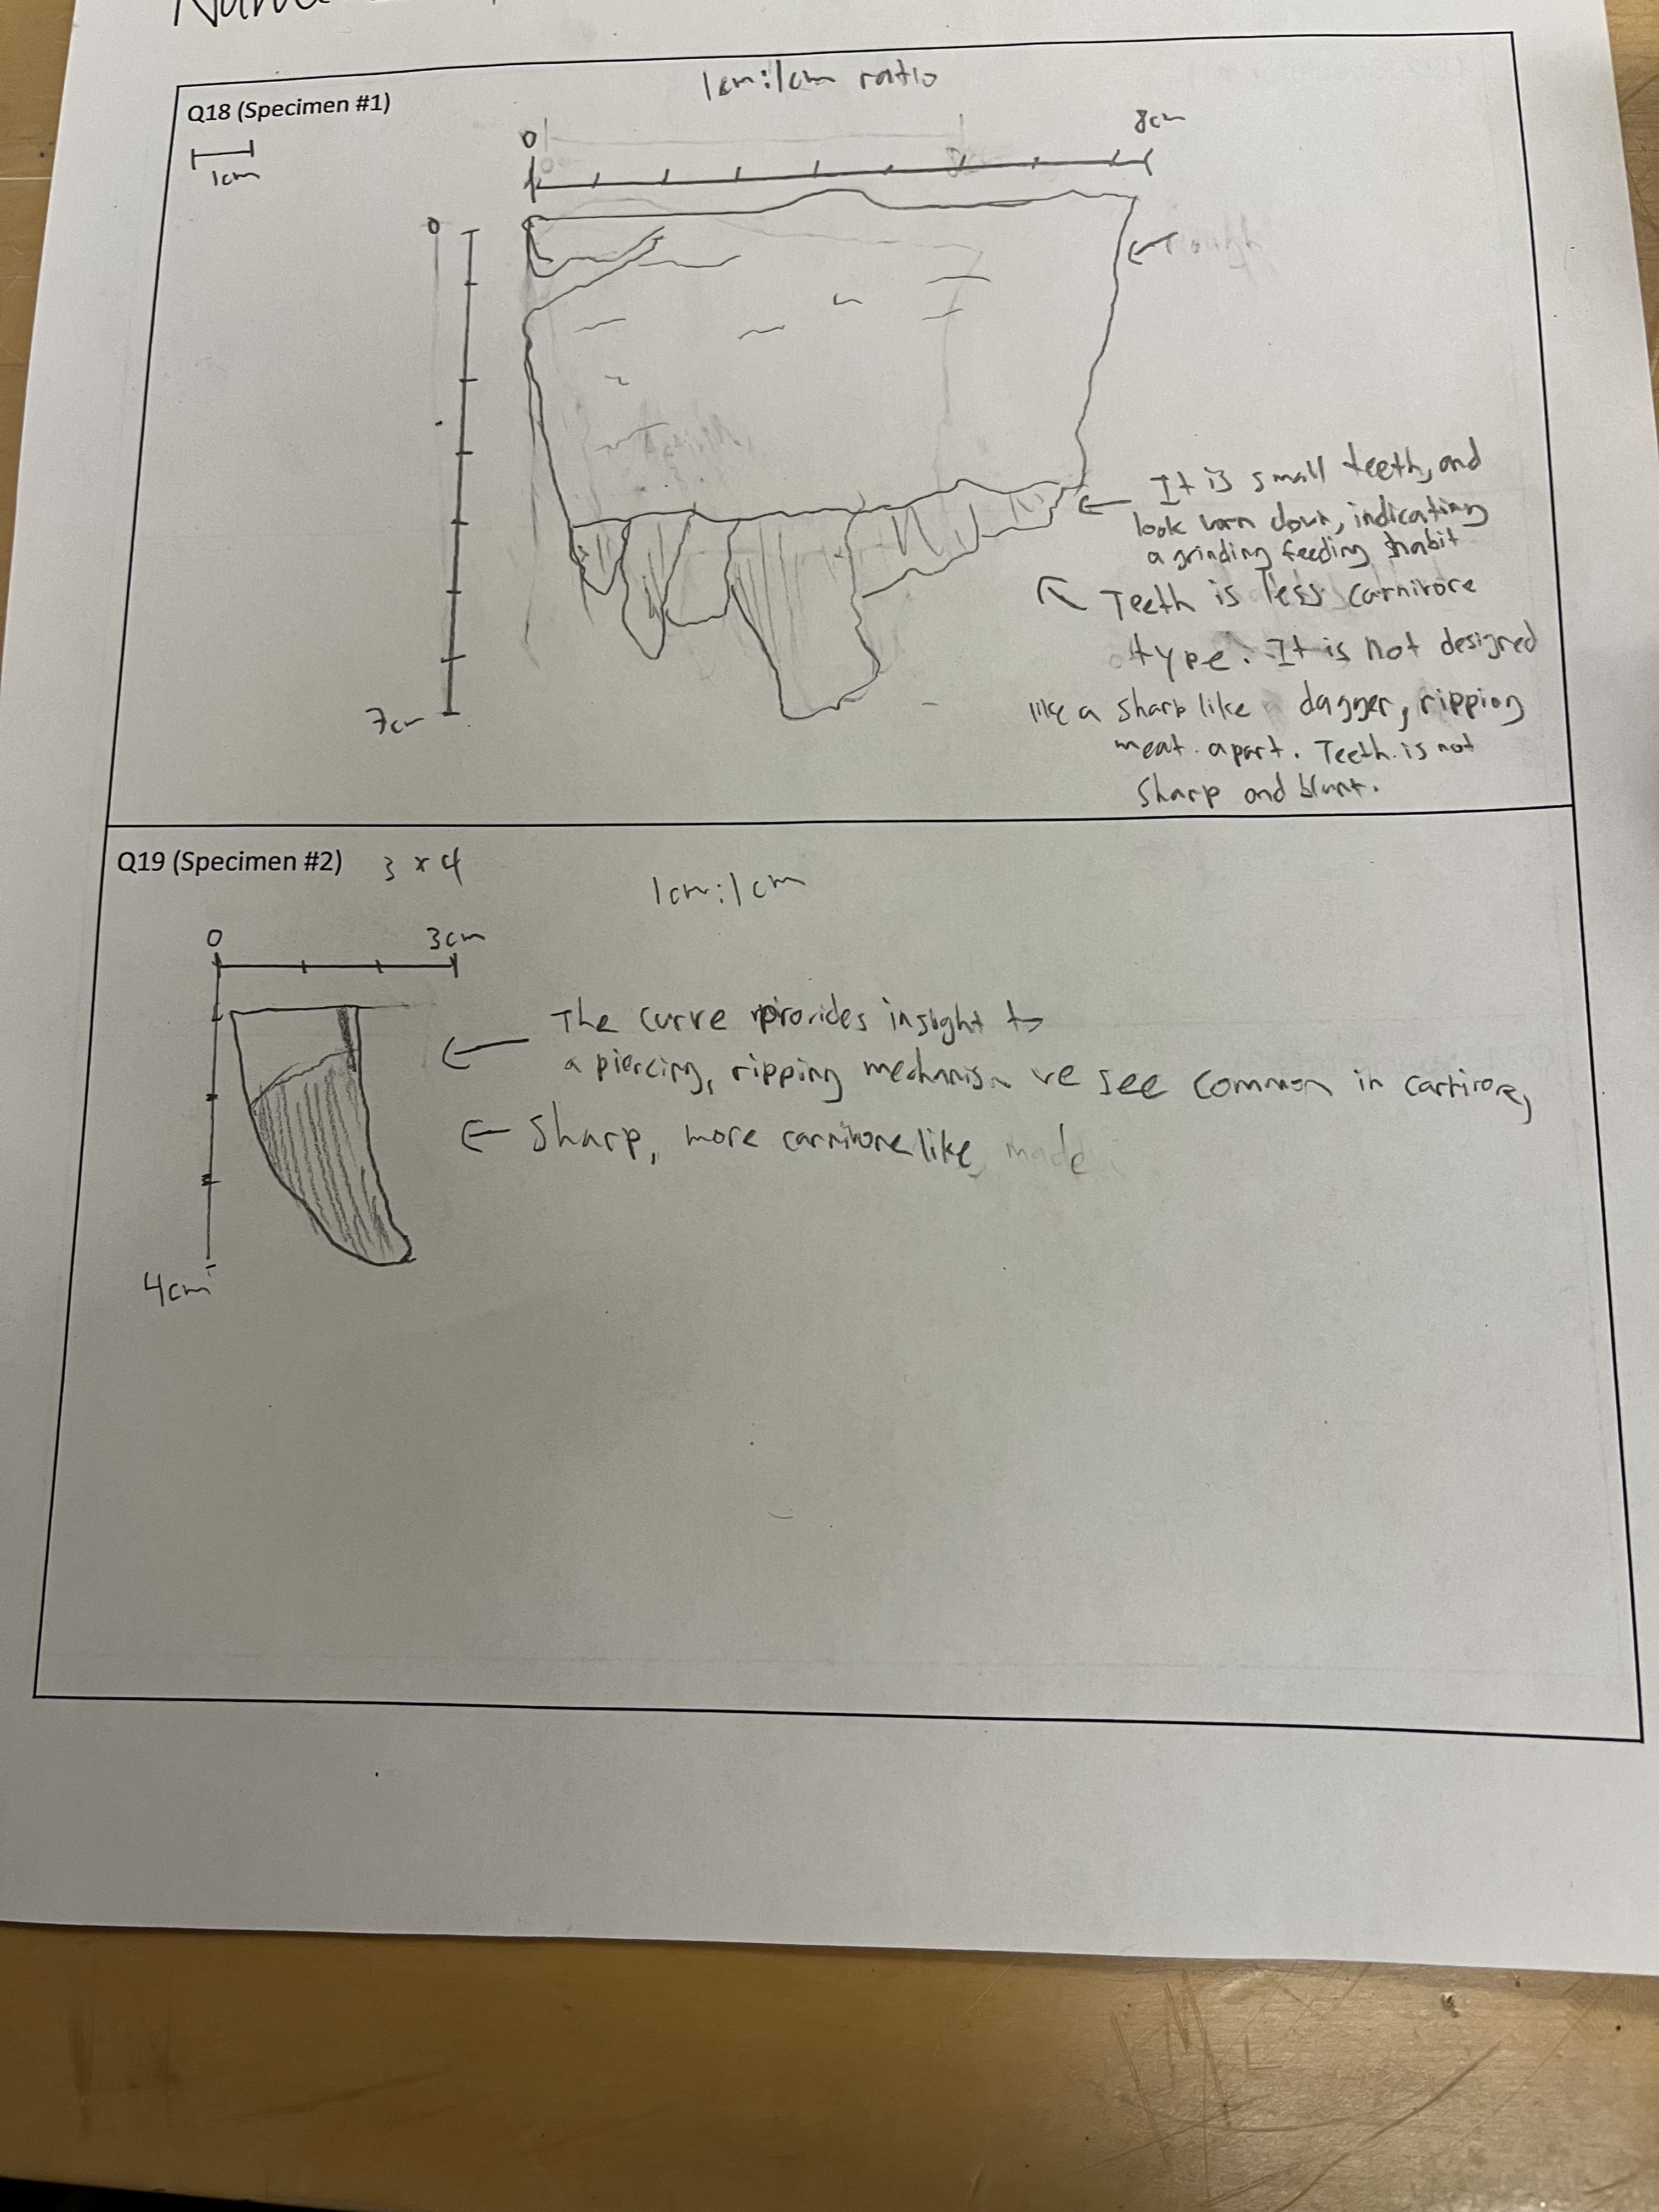 Name
Q18 (Specimen #1)
1cm:1cm ratio
1cm
0
8cm
0
7cm
It is small teeth, and
look worn down, indicating
a grinding feeding habit
Teeth is less carnivore
type. It is not designed
like a sharp like dagger, ripping
meat apart. Teeth is not
sharp and blunt.
Q19 (Specimen #2) 3 x 4
1cm:1cm
0
3cm
4cm
The curve provides insight to
a piercing, ripping mechanism we see common in
Sharp, more carnivore like, made